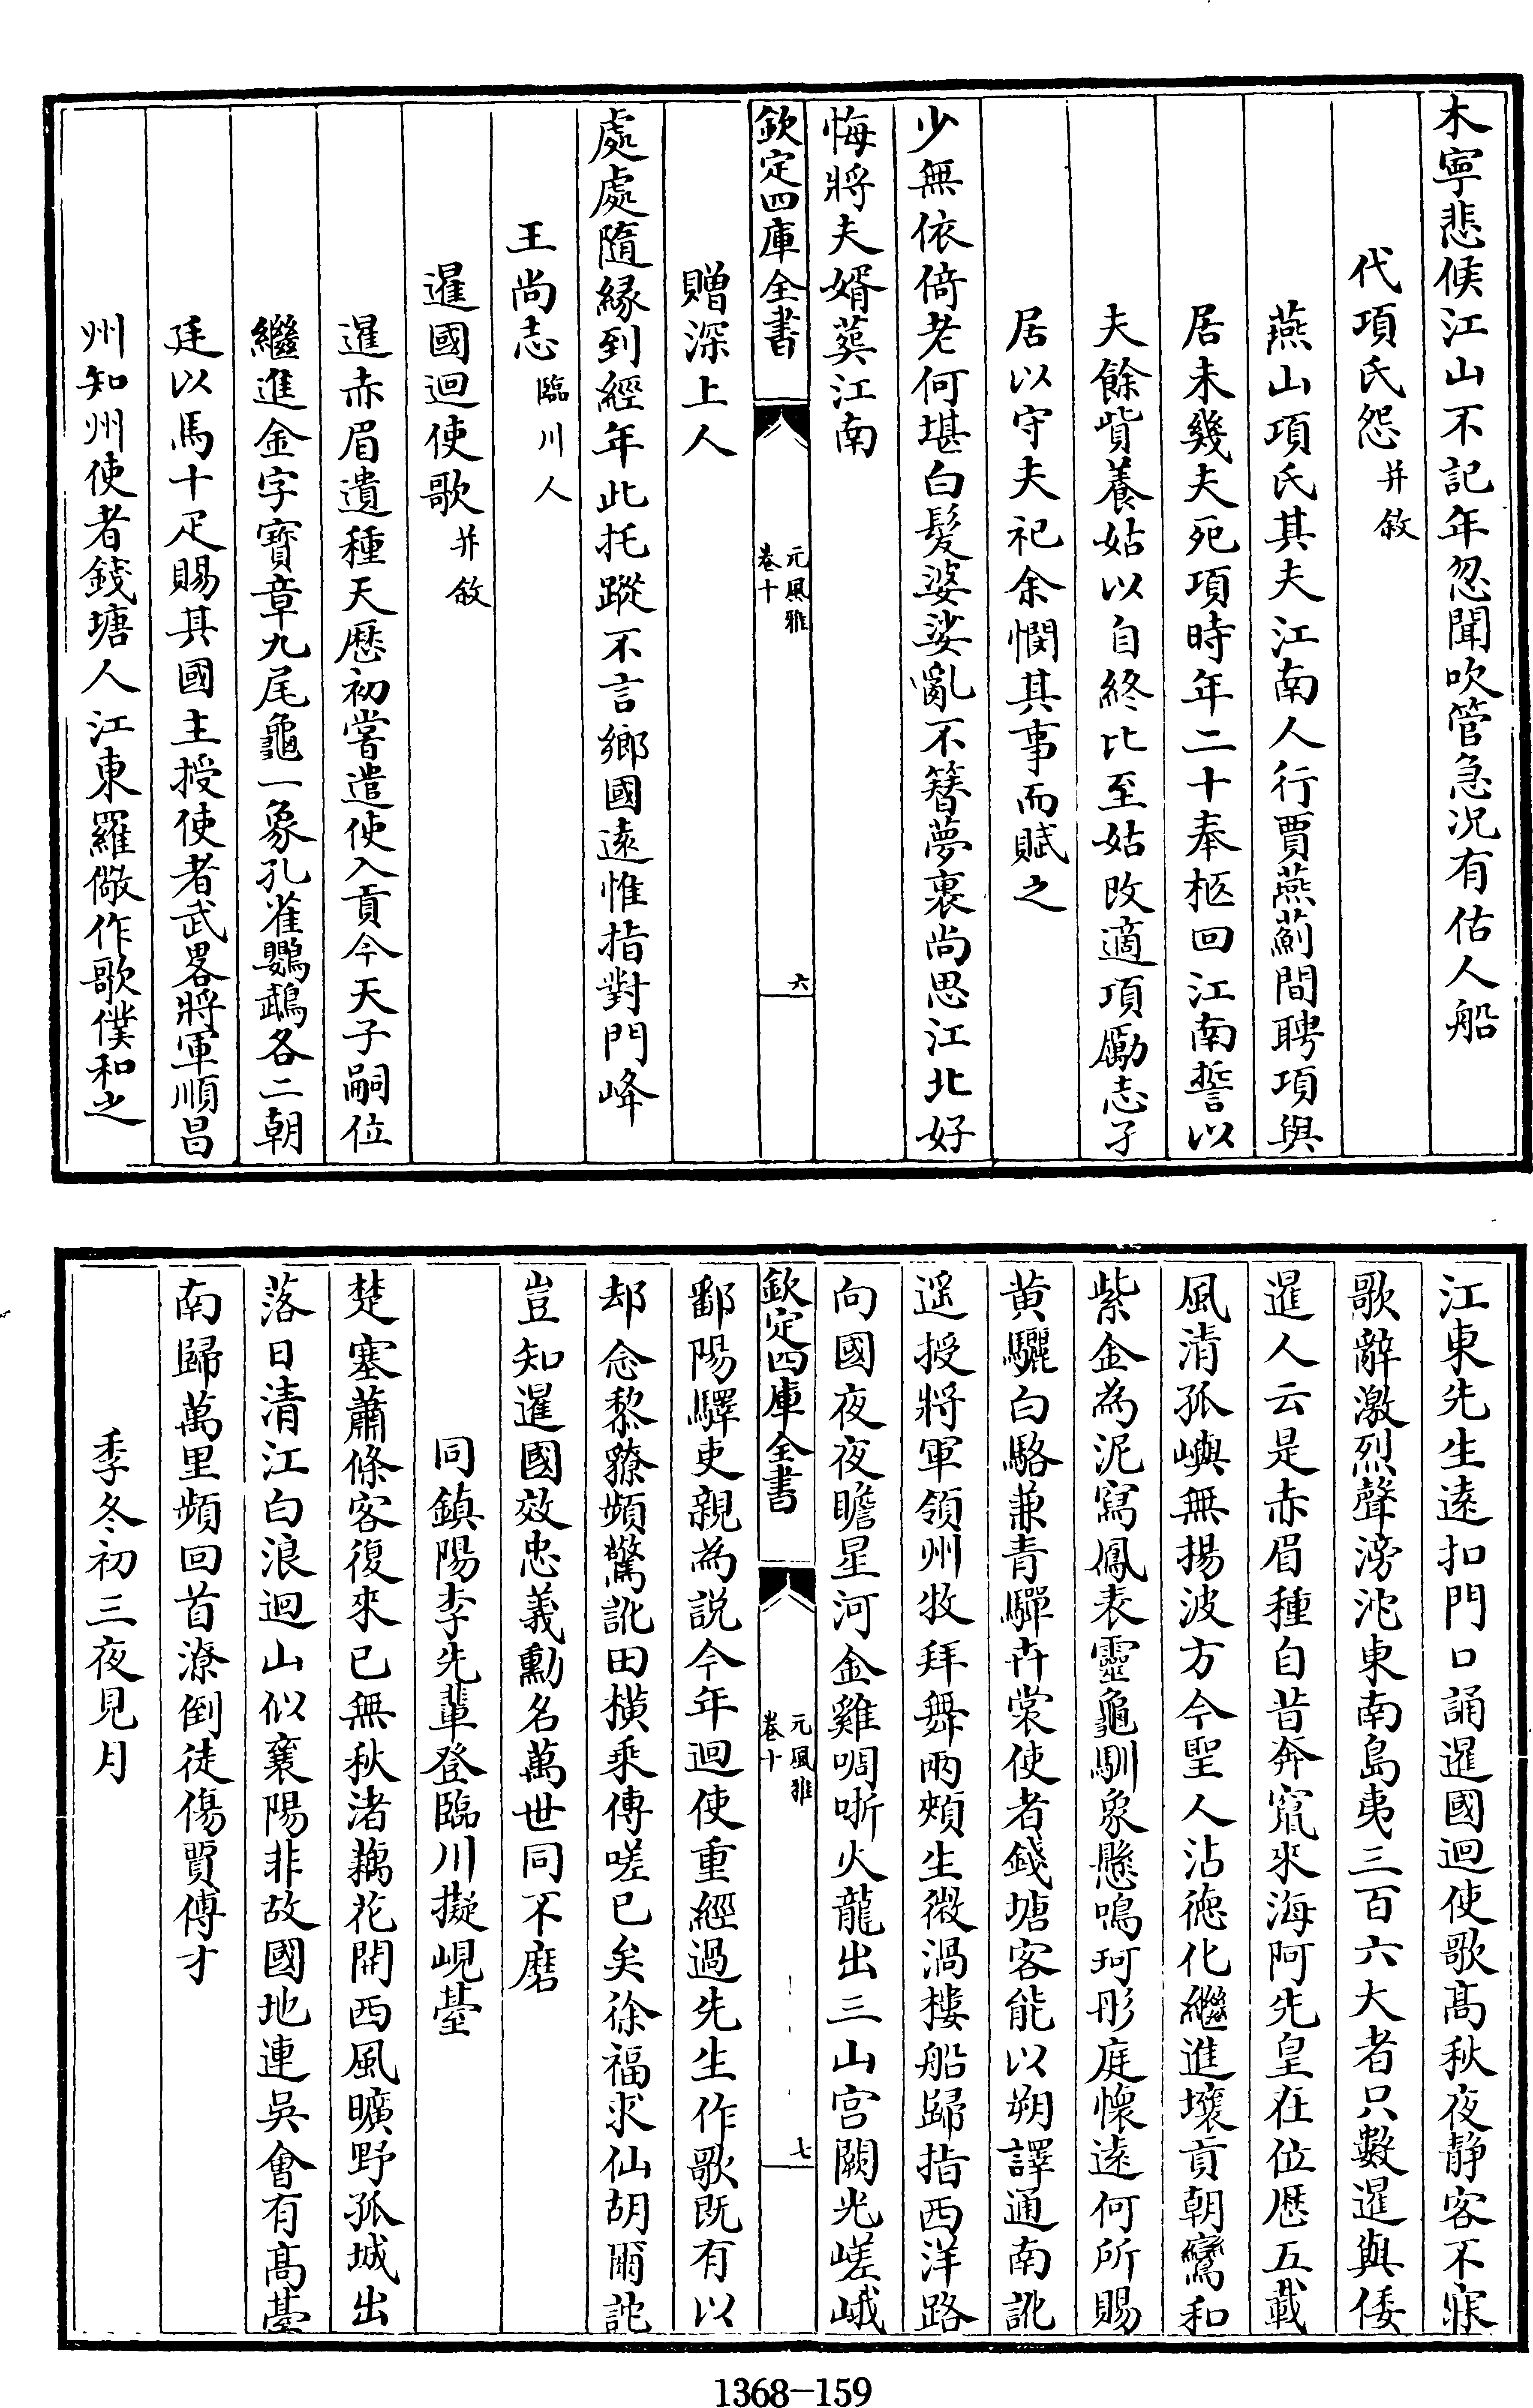 木寧悲候江山不記年忽聞吹管急况有估人船
代項氏怨并敘
燕山項氏其夫江南人行賈燕薊間聘項與
居未幾夫死項時年二十奉柩回江南誓以
夫餘貲養姑以自終比至姑改適項勵志孑
居以守夫祀余憫其事而賦之
少無依倚老何堪白髪婆娑亂不簪夢裏尚思江北好
悔將夫婿葬江南
欽定四庫全書
元風雅
卷十
六
贈深上人
處處隨縁到經年此托蹤不言鄉國逺惟指對門峰
王尚志臨川人
暹國迴使歌并敘
暹赤眉遺種天厯初嘗遣使入貢今天子嗣位
繼進金字寳章九尾龜一象孔雀鸚鵡各二朝
廷以馬十疋賜其國主授使者武畧將軍順昌
州知州使者錢塘人江東羅儆作歌僕和之
江東先生逺扣門口誦暹國迴使歌髙秋夜静客不寐
歌辭激烈聲滂沱東南島夷三百六大者只數暹與倭
暹人云是赤眉種自昔奔竄來海阿先皇在位厯五載
風清孤嶼無揚波方今聖人沾徳化繼進壤貢朝鸞和
紫金為泥寫鳳表靈龜馴象懸鳴珂彤庭懐逺何所賜
黄驪白駱兼青驒卉裳使者錢塘客能以朔譯通南訛
遥授將軍領州牧拜舞兩頰生微渦樓船歸指西洋路
向國夜夜瞻星河金雞啁哳火龍出三山宫闕光嵯峨
欽定四庫全書
元風雅
卷十
七
鄱陽驛吏親為説今年迴使重經過先生作歌既有以
却念黎獠頻驚訛田横乘傳嗟已矣徐福求仙胡爾詑
豈知暹國效忠義勳名萬世同不磨
同鎮陽李先輩登臨川擬峴臺
楚塞蕭條客復來已無秋渚藕花開西風曠野孤城出
落日清江白浪迴山似襄陽非故國地連吳會有髙臺
南歸萬里頻回首潦倒徒傷賈傅才
季冬初三夜見月
1368-159